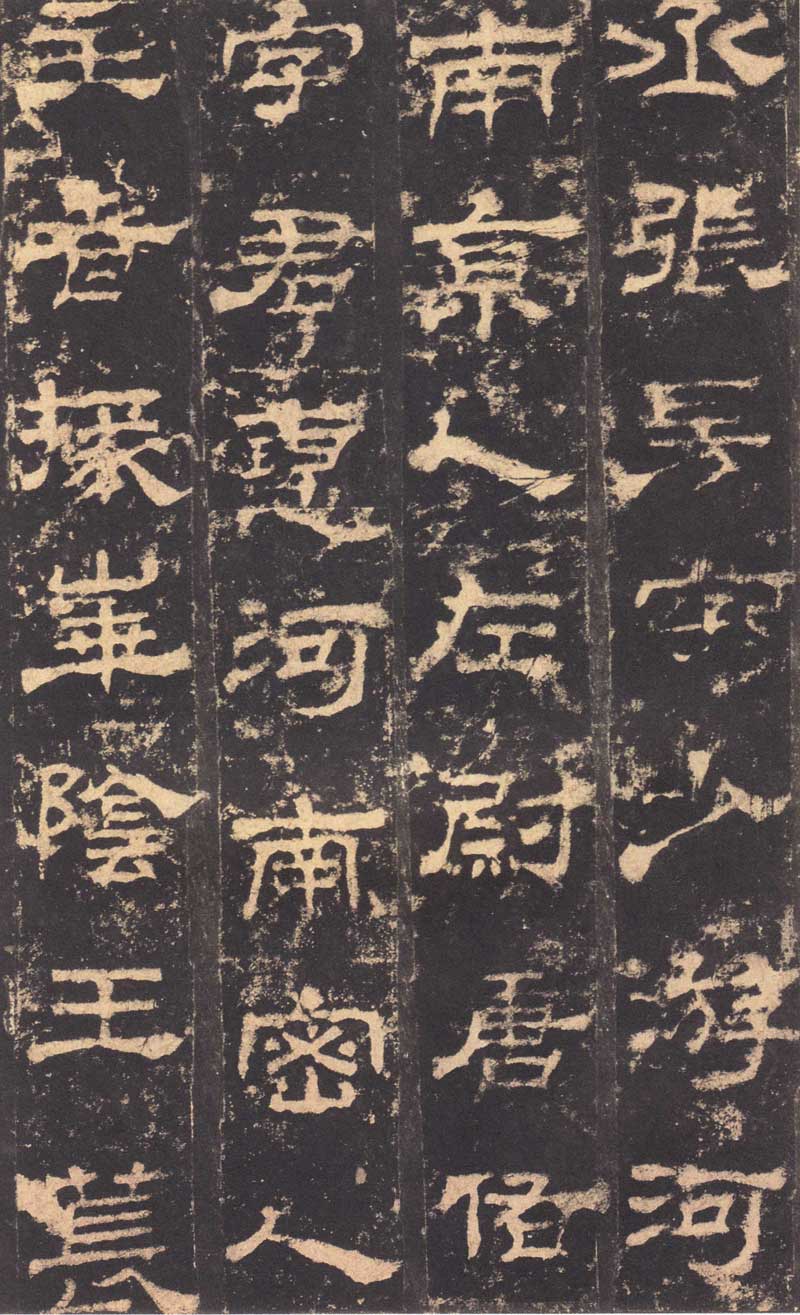 丞張昉字少游河
南京人左尉唐佑
字君惠河南密人
主者掾華陰王萇